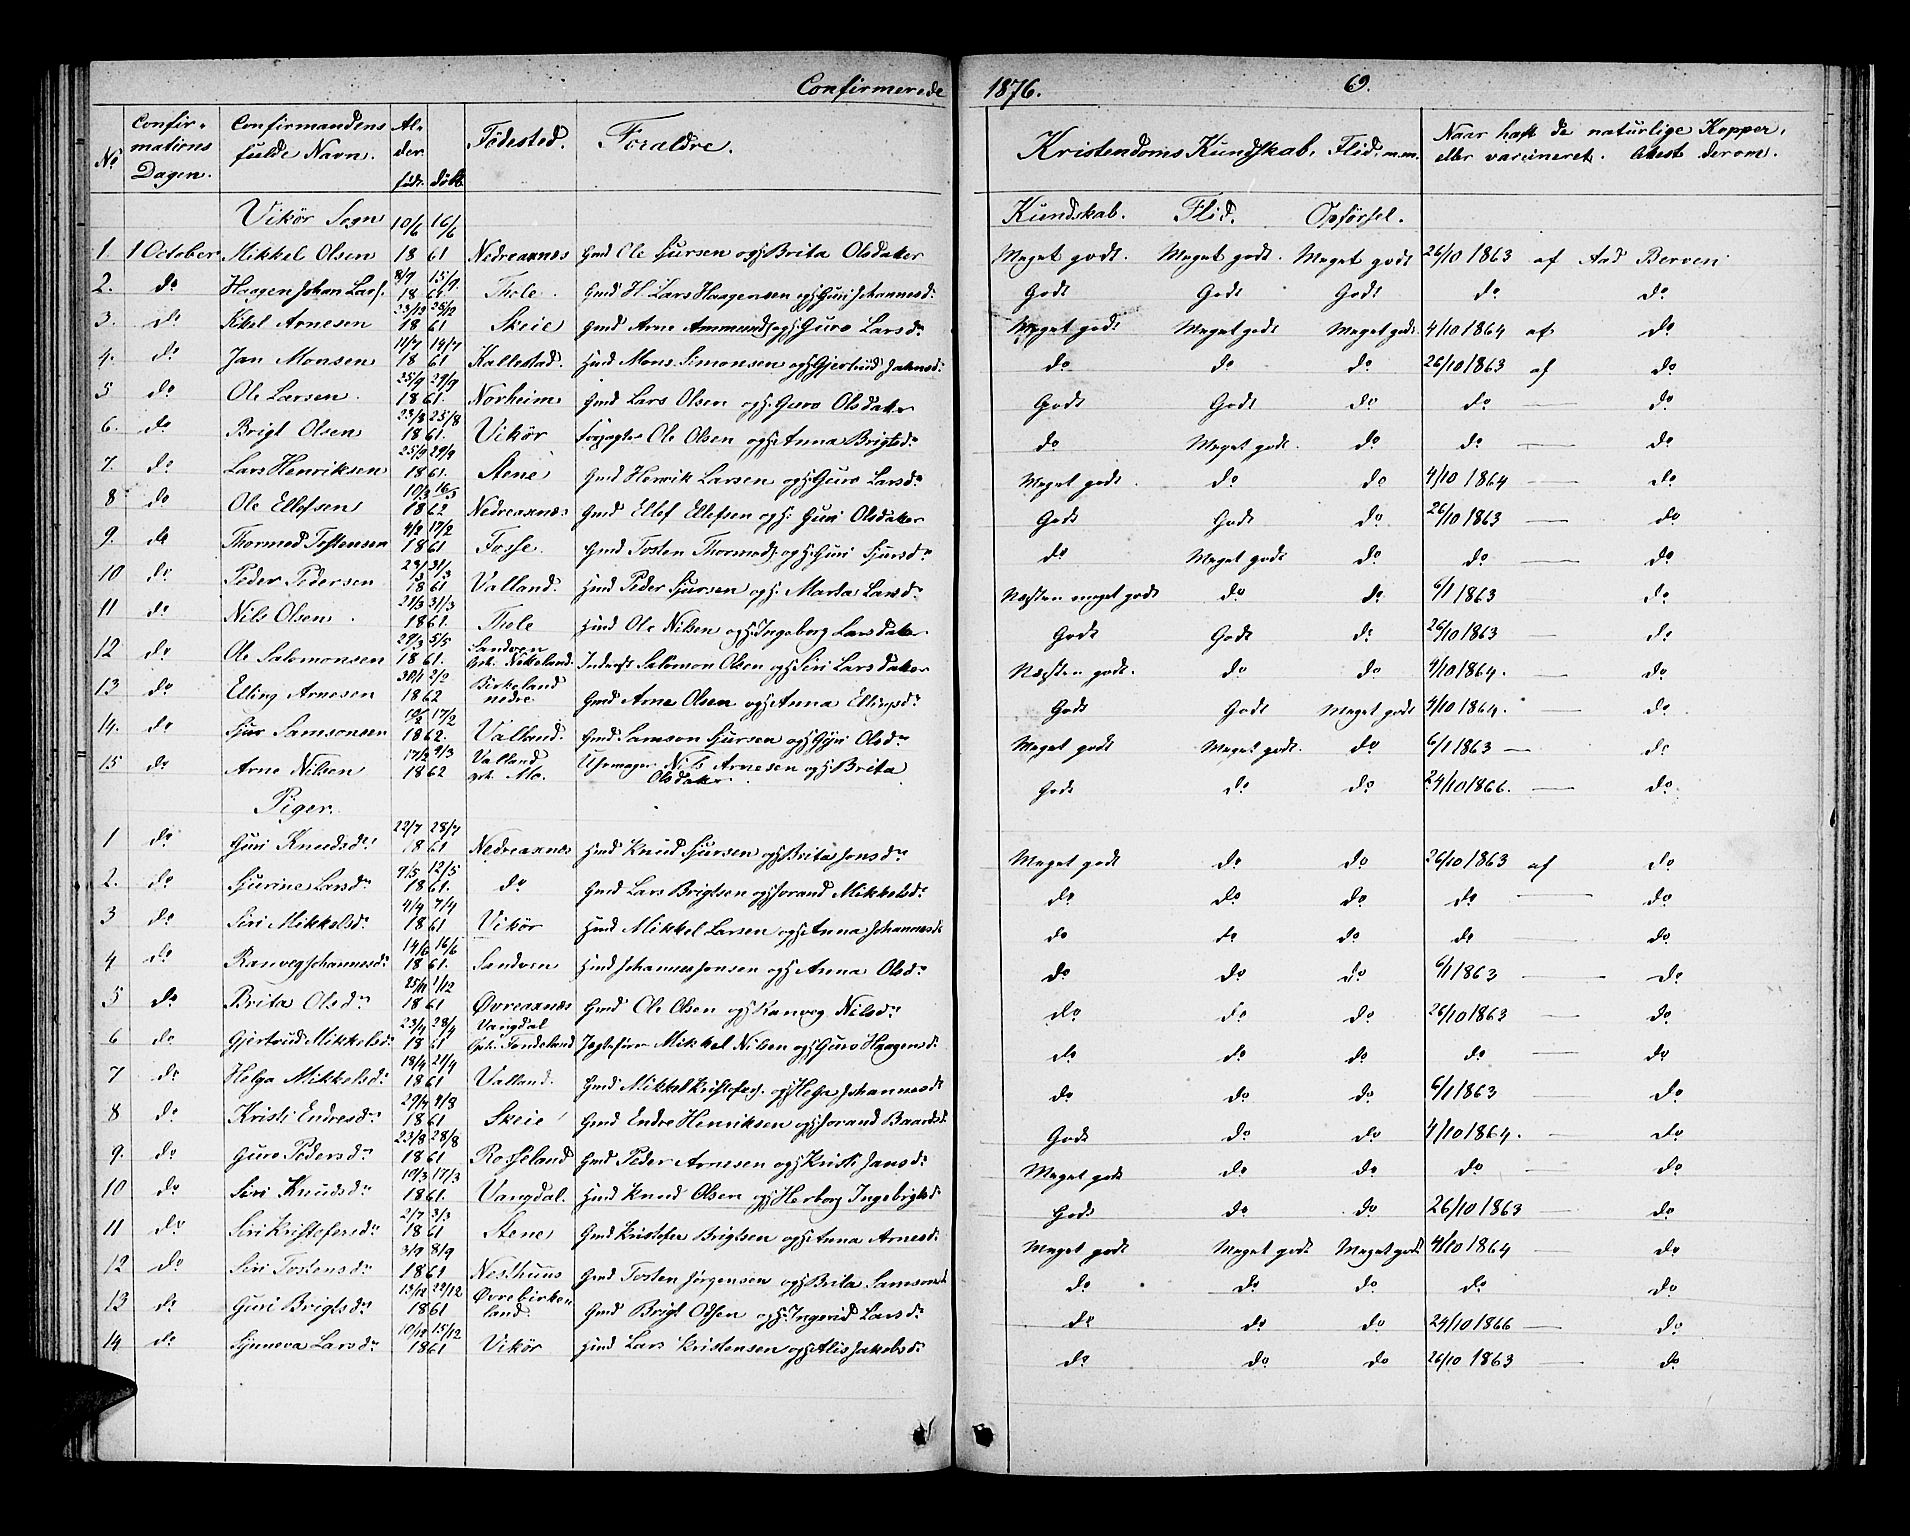 Confirmerede 1876. 69.
No Confirmations Dagen. Confirmandens fulde Navn. Alder. født. døbt. Fødested. Forældre. Kristendoms Kundskab, Flid, m.m. Naar haft de naturlige Kopper, eller vaccineret. Attest derom.
Vikør Sogn Kundskab. Flid. Opførsel.
1. 1 October Mikkel Olsen 10/6 16/6 1861 Nedreaxnes Gmd Ole Sjursen og H. Brita Olsdatter Meget godt. Meget godt. Meget godt 26/10 1863 af Aad Berven
2. do Haagen Johan Lars. 8/9 15/9 1861 Thole. Gmd H. Lars Haagensen og H. Guri Johannesd. Godt Godt Godt do do
3. do Kkel Arnesen 23/12 25/12 1861 Skeie Gmd Arne Ammunds. og H. Guro Larsdr Meget godt Meget godt Meget godt. 4/10 1864 af do
4. do Jan Monsen 11/7 14/7 1861 Kallestad. Hmd Mons Simonsen og H. Gjertrud Jansd. do do do 26/10 1863 af do
5 do Ole Larsen. 25/9 29/9 1861. Norheim Gmd Lars Olsen og H. Guro Olsdatter Godt Godt do do — do
6. do Brigt Olsen 23/8 25/8 1861. Vikør Forpagter Ole Olsen og H. Anna Brigtsdr do Meget godt. do do — do
7. do Lars Henriksen 25/9 29/9 1861. Stene Gmd Henrik Larsen og H. Guro Larsdr Meget godt. do do 4/10 1864 — do
8 do Ole Ellefsen 10/3 16/3 1862 Nedreaxnes Gmd Ellef Ellefsen og H. Guri Olsdatter Godt Godt do 26/10 1863 — do
9. do Thormod Tostensen 4/2 17/2 1861 Fosse. Gmd Tosten Thormods. og H. Guri Sjursdr do Meget godt do do — do
10 do Peder Pedersen 23/3 31/3 1861 Valland. Hmd Peder Sjursen og H. Marta Larsdr Næsten meget godt do do 6/1 1863 do
11 do Nils Olsen. 21/3 31/3 1861. Thole Hmd Ole Nilsen og H. Ingeborg Larsdatter Godt Godt do 26/10 1863 — do
12 do Ole Salomonsen 29/3 5/5 1861. Sandven Gsk. Nikeland. Inderst Salomon Olsen og H. Siri Larsdatter Næsten godt. do do 4/10 1864. — do
13 do Elling Arnesen 30/1 2/2 1862 Birkeland nedre. Gmd Arne Olsen og H. Anna Ellingsdr Godt Godt Meget godt 4/10 1864. — do
14. do Sjur Samsonsen 10/2 17/2 1862. Valland. Gmd Samson Sjursen og H. Gyri Olsdr Meget godt Meget godt. do 6/1 1863 — do
15 do Arne Nilsen 17/2 9/3 1862 Valland gsk. Mo. Uhrmager Nils Arnesen og H. Brita Olsdatter. Godt do do 24/10 1866. — do
Piger.
1 do Guri Knudsdr 22/7 28/7 1861 Nedreaxnes Hmd Knud Sjursen og H. Brita Jonsdr Meget godt do do 26/10 1863 af do
2. do Sjurine Larsdr 9/5 12/5 1861. do Gmd Lars Brigtsen og H. Jorand Mikkelsdr do do do do — do
3 do Siri Mikkelsdr 4/4 7/4 1861 Vikør Hmd Mikkel Larsen og H. Anna Johannesdr do do do do — do
4 do Ranveg Johannesdr 14/6 16/6 1861. Sandven Hmd Johannes Jonsen og H. Anna Olsdr do do do 6/1 1863 — do
5 do Brita Olsdr 25/11 1/12 1861 Øvreaxnes Gmd Ole Olsen og H. Ranveg Nilsdr do do do 26/10 1863 — do
6 do Gjertrud Mikkelsdr 23/4 28/4 1861 Vangdal Gsk. Tondeland Jægtefører Mikkel Nilsen og H. Guro Haagensdr do do do do — do
7 do Helga Mikkelsdr 18/4 21/4 1861 Valland. Gmd Mikkel Kristofers. og H. Helga Johannesdr do do do 6/1 1863 — do
8 do Kristi Endresdr 29/7 4/8 1861 Skeie Gmd Endre Henriksen og H. Jorand Baardsdr Godt do do 4/10 1864. — do
9. do Guro Pedersdr 23/8 28/8 1861 Rosseland Gmd Peder Arnesen og H. Kristi Jansdr Meget godt do do do — do
10 do Siri Knudsdr 10/3 17/3 1861. Vangdal. Hmd Knud Olsen og H. Herborg Ingebrigtsdr Godt do do 26/10 1863 — do
11 do Siri Kristofersdr 2/7 3/3 1861 Stene Gmd Kristofer Brigtsen og H. Anna Arnesdr Meget godt Meget godt Meget godt 4/10 1864 — do
12 do Siri Tostensdr 3/9 8/9 1861 Nesthuus Gmd Tosten Jørgensen og H. Brita Samsonsd. do do do do do
13 do Guri Brigtsdr 13/12 29/12 1861 Øvrebirkeland. Gmd Brigt Olsen og H. Ingerid Larsdr do do do 24/10 1866 — do
14 do Synneva Larsdr 10/12 15/12 1861 Vikør Hmd Lars Kristensen og H. Alis Jakobsdr do do do 26/10 1863 — do